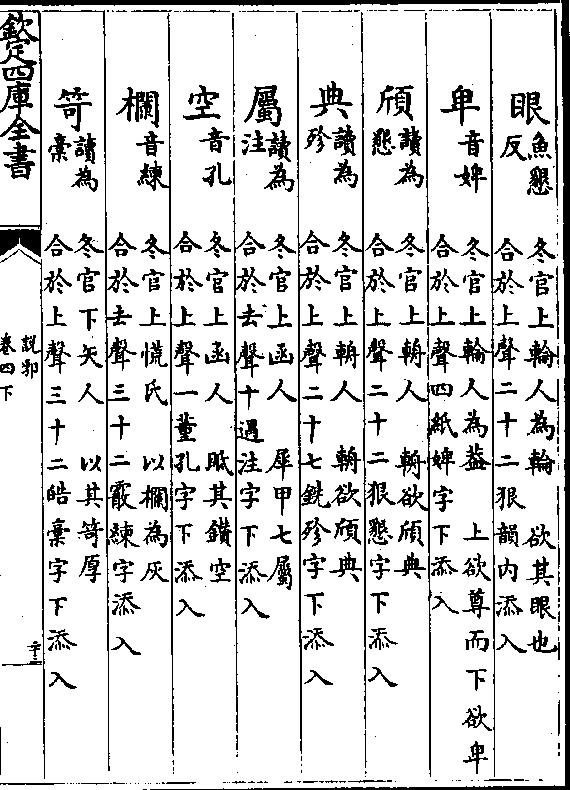 眼 魚懇反 冬官上輪人為輪 欲其眼也 合於上聲二十二狠韻内添入
卑 音婢 冬官上輪人為葢 上欲尊而下欲卑 合於上聲四紙婢字下添入
頎 讀為懇 冬官上輈人 輈欲頎典 合於上聲二十二狠懇字下添入
典 讀為殄 冬官上輈人 輈欲頎典 合於上聲二十七銑殄字下添入
屬 讀為注 冬官上函人 犀甲七屬 合於去聲十遇注字下添入
空 音孔 冬官上函人 眡其鑚空 合於上聲一董孔字下添入
欄 音練 冬官上㡃氏 以欄為灰 合於去聲三十二霰練字添入
笴 讀為槀 冬官下矢人 以其笴厚 合於上聲三十二皓槀字下添入
欽定四庫全書
説郛
卷四下